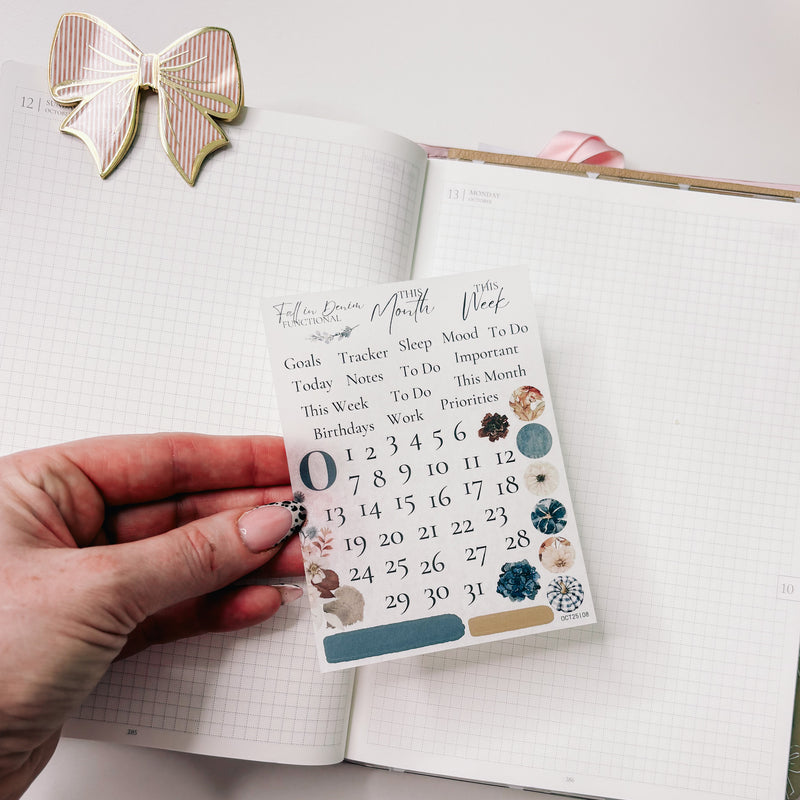 12 SUNDAY
OCTOBER
13 MONDAY
OCTOBER
Fall in Denim
FUNCTIONAL
THIS
Month
THIS
Week
Goals Tracker Sleep Mood To Do
Today Notes To Do Important
This Week To Do This Month
Birthdays Work Priorities
O 1 2 3 4 5 6
7 8 9 10 11 12
13 14 15 16 17 18
19 20 21 22 23
24 25 26 27 28
29 30 31
OCT25|08
10
285
286